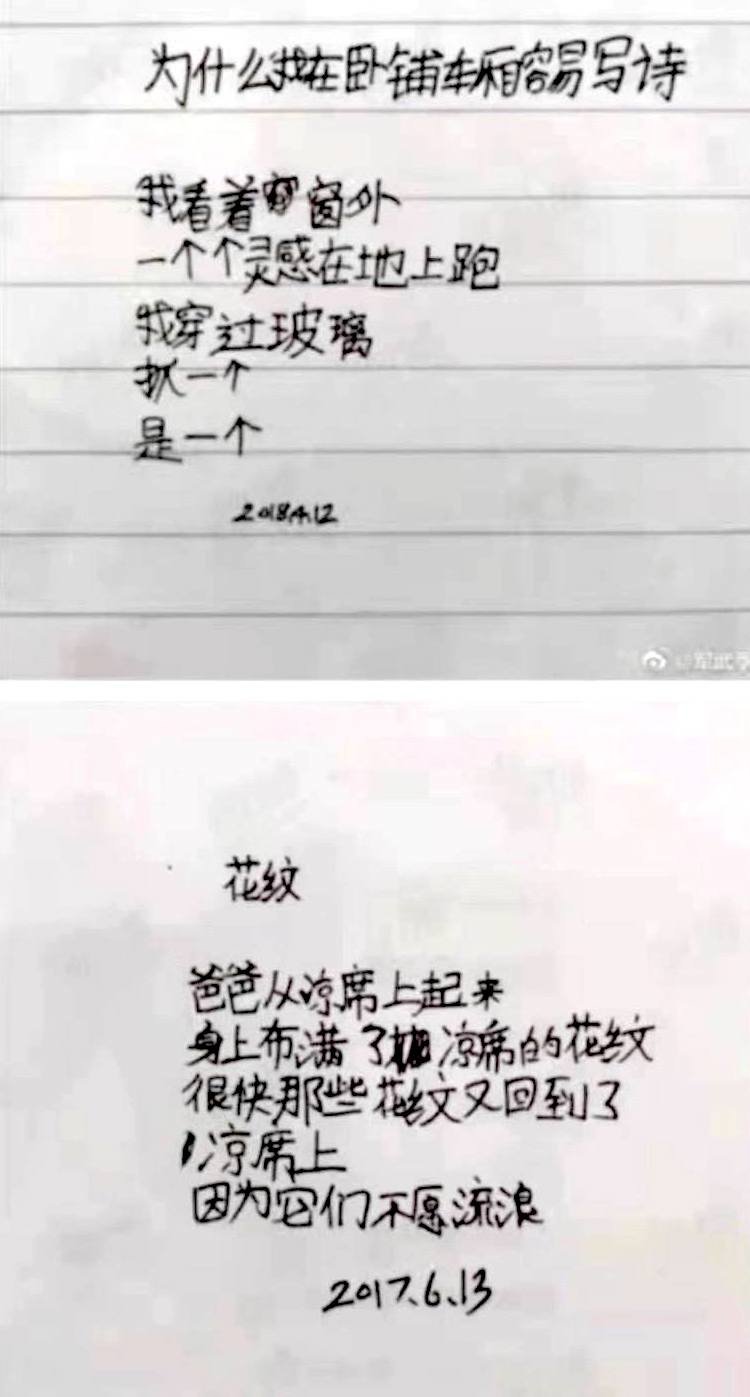 为什么我在卧铺车厢容易写诗
我看着窗外
一个个灵感在地上跑
我穿过玻璃
抓一个
是一个
2018.4.12
花纹
爸爸从凉席上起来
身上布满了凉席的花纹
很快那些花纹又回到了
凉席上
因为它们不愿流浪
2017.6.13